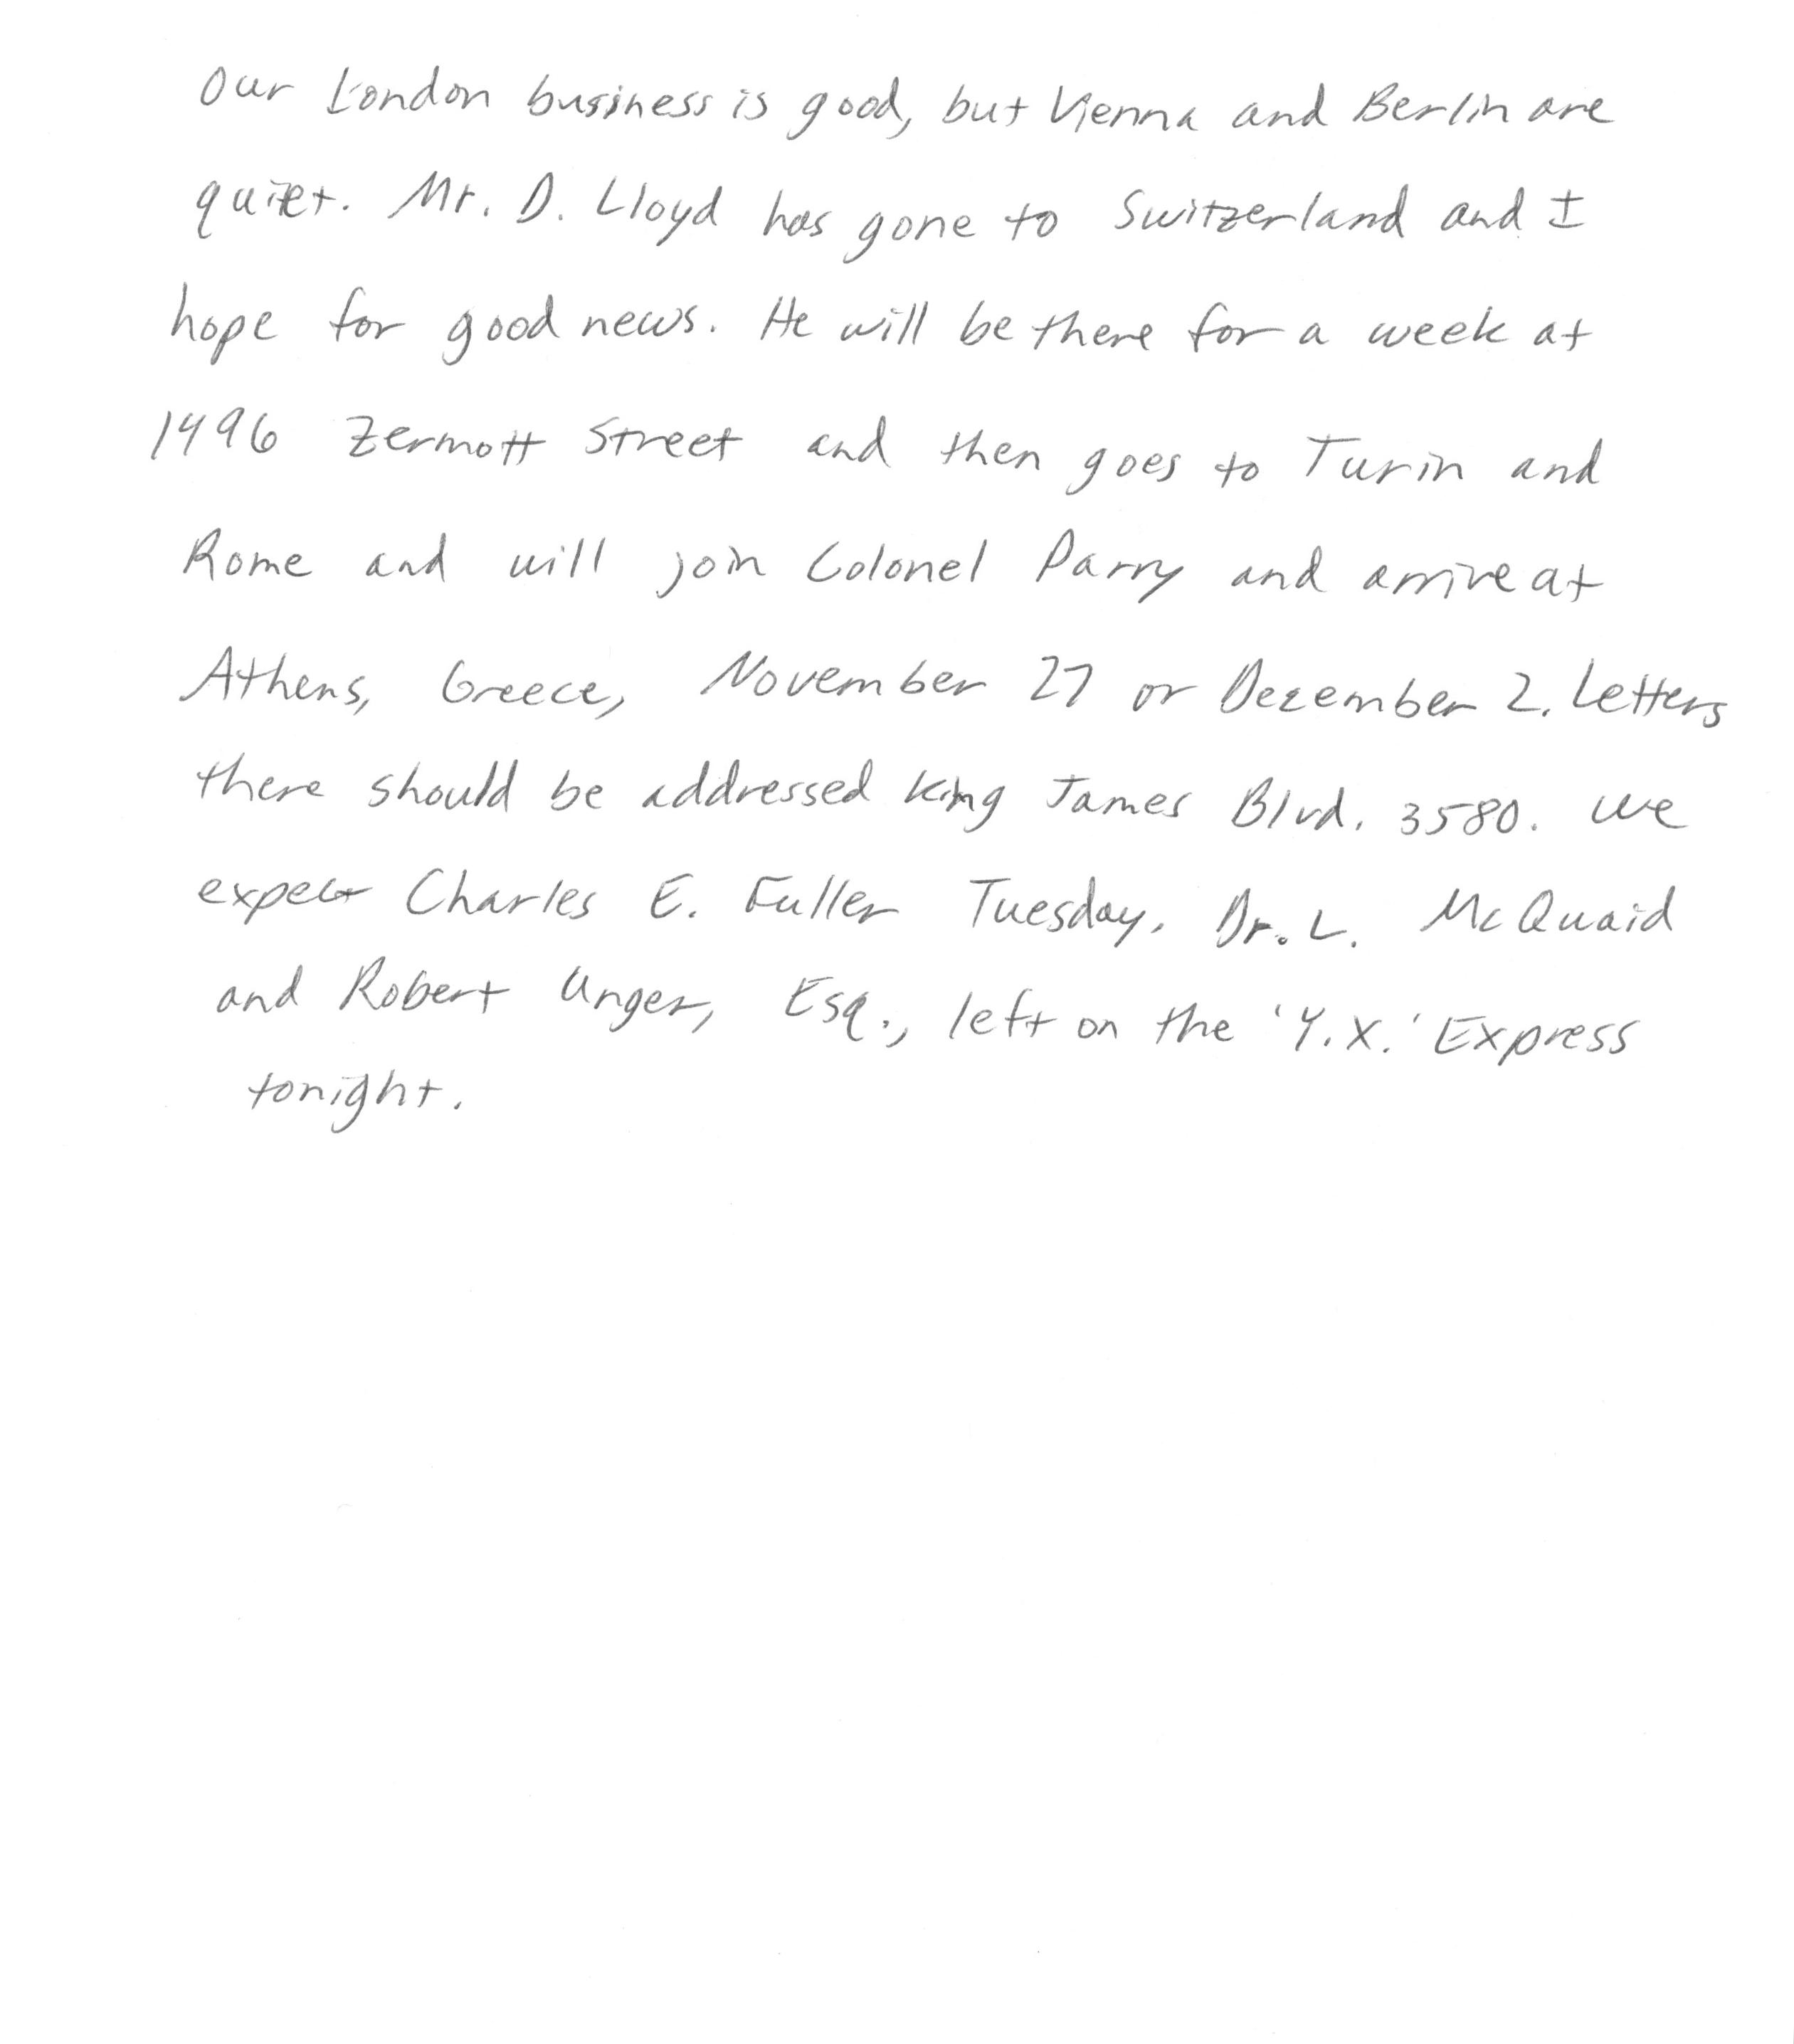 Our London business is good, but Vienna and Berlin are
quiet. Mr. D. Lloyd has gone to Switzerland and I
hope for good news. He will be there for a week at
1496 Zermott Street and then goes to Turin and
Rome and will join Colonel Parry and arrive at
Athens, Greece, November 27 or December 2. Letters
there should be addressed King James Blvd. 3580. We
expect Charles E. Fuller Tuesday. Dr. L. McQuaid
and Robert Unger, Esq., left on the 'Y.X.' Express
tonight.